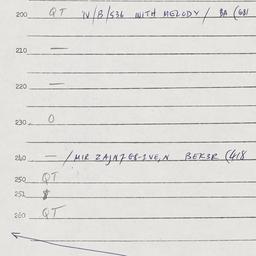 200 QT W/B/536 WITH MELODY / BA (68/
210 —
220 —
230 0
240 — / MIR ZAJNT GB-IVE,N BEKER (418
250 QT
252
260 QT